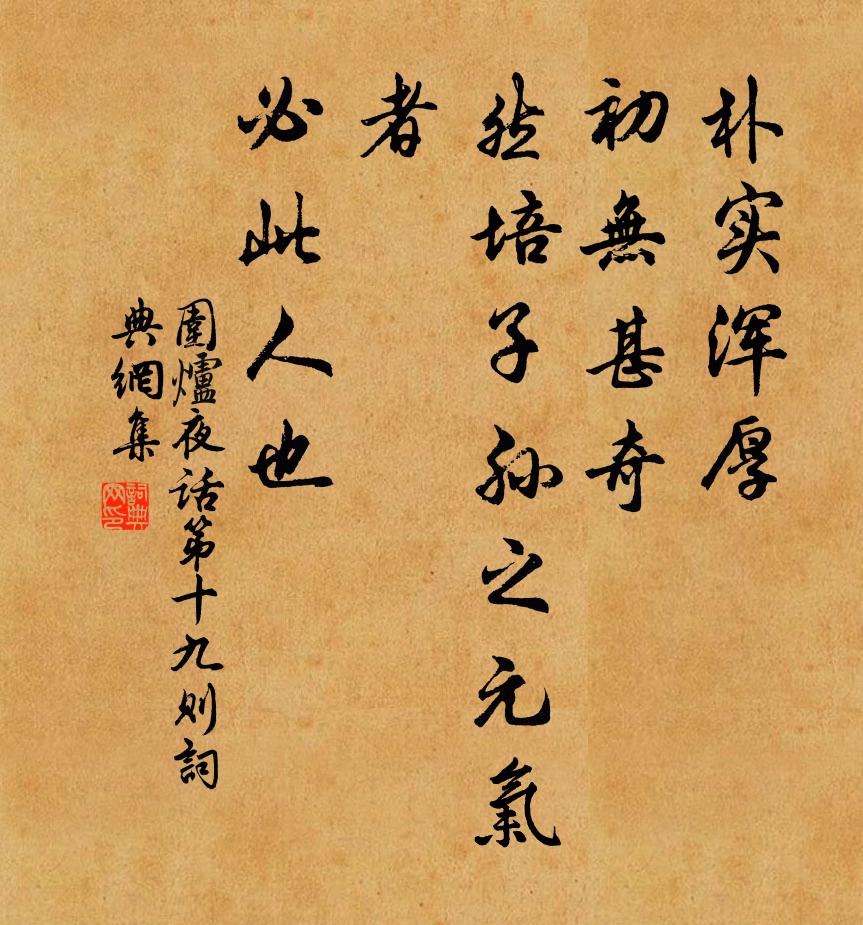 朴实浑厚
初無甚奇
然培子孙之元氣
者
必此人也
圍爐夜话第十九则詞
典網集
詞典
网印